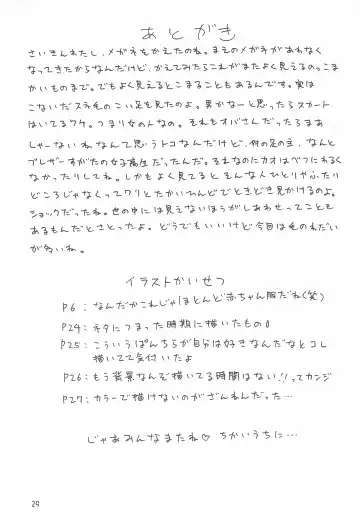 あとがき
さいきんわたし、メガネをかえたのね。まえのメガネがあわなく
なってきたからなんだけど、かえてみたらこれがまたよく見えるのっこま
かいものまで。でもよく見えるとこまることもあるんです。実は
こないだスネ毛のこい足を見たのよ。男かなーと思ったらスカート
はいてるワケ。つまり女の人なの。それもオバさんだったらまあ
しゃーないねなんて思うトコなんだけど、例の足の主、なんと
ブレザーすがたの女子高生だったんだ。それなのにカオはべつにわるく
なかったりしてね。しかもよく見てるとそんな人ひとりやふたり
どころじゃなくってワリとたかいひんどでときどき見かけるのよ。
ショックだったね。世の中には見えないほうがしあわせってことも
あるもんだとさとったよ。どうでもいいけど今回は毛のねだい
が多いね。
イラストかいせつ
P6:なんだかこれじゃほとんど赤ちゃん服だね(笑)
P24:ネタにつまった時期に描いたもの
P25:こういうぱんちらが自分は好きなんだなとコレ
描いてて気付いたよ
P26:もう背景なんぞ描いてる時間はない!!ってカンジ
P27:カラーで描けないのがざんねんだった…
じゃあみんなまたね♡ ちかいうちに…
29